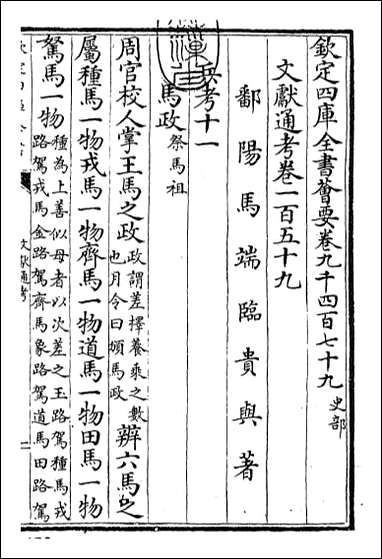 欽定四庫全書薈要卷九千四百七十九 史部
文獻通考卷一百五十九
鄱陽馬端臨貴與著
兵考十一
馬政 祭馬祖
周官校人掌王馬之政 政謂差擇養乘之數也月令曰頒馬政 辨六馬之
屬種馬一物戎馬一物齊馬一物道馬一物田馬一物
駑馬一物 種為上善似母者以次差之玉路駕種馬戎路駕戎馬金路駕齊馬象路駕道馬田路駕
文獻通考